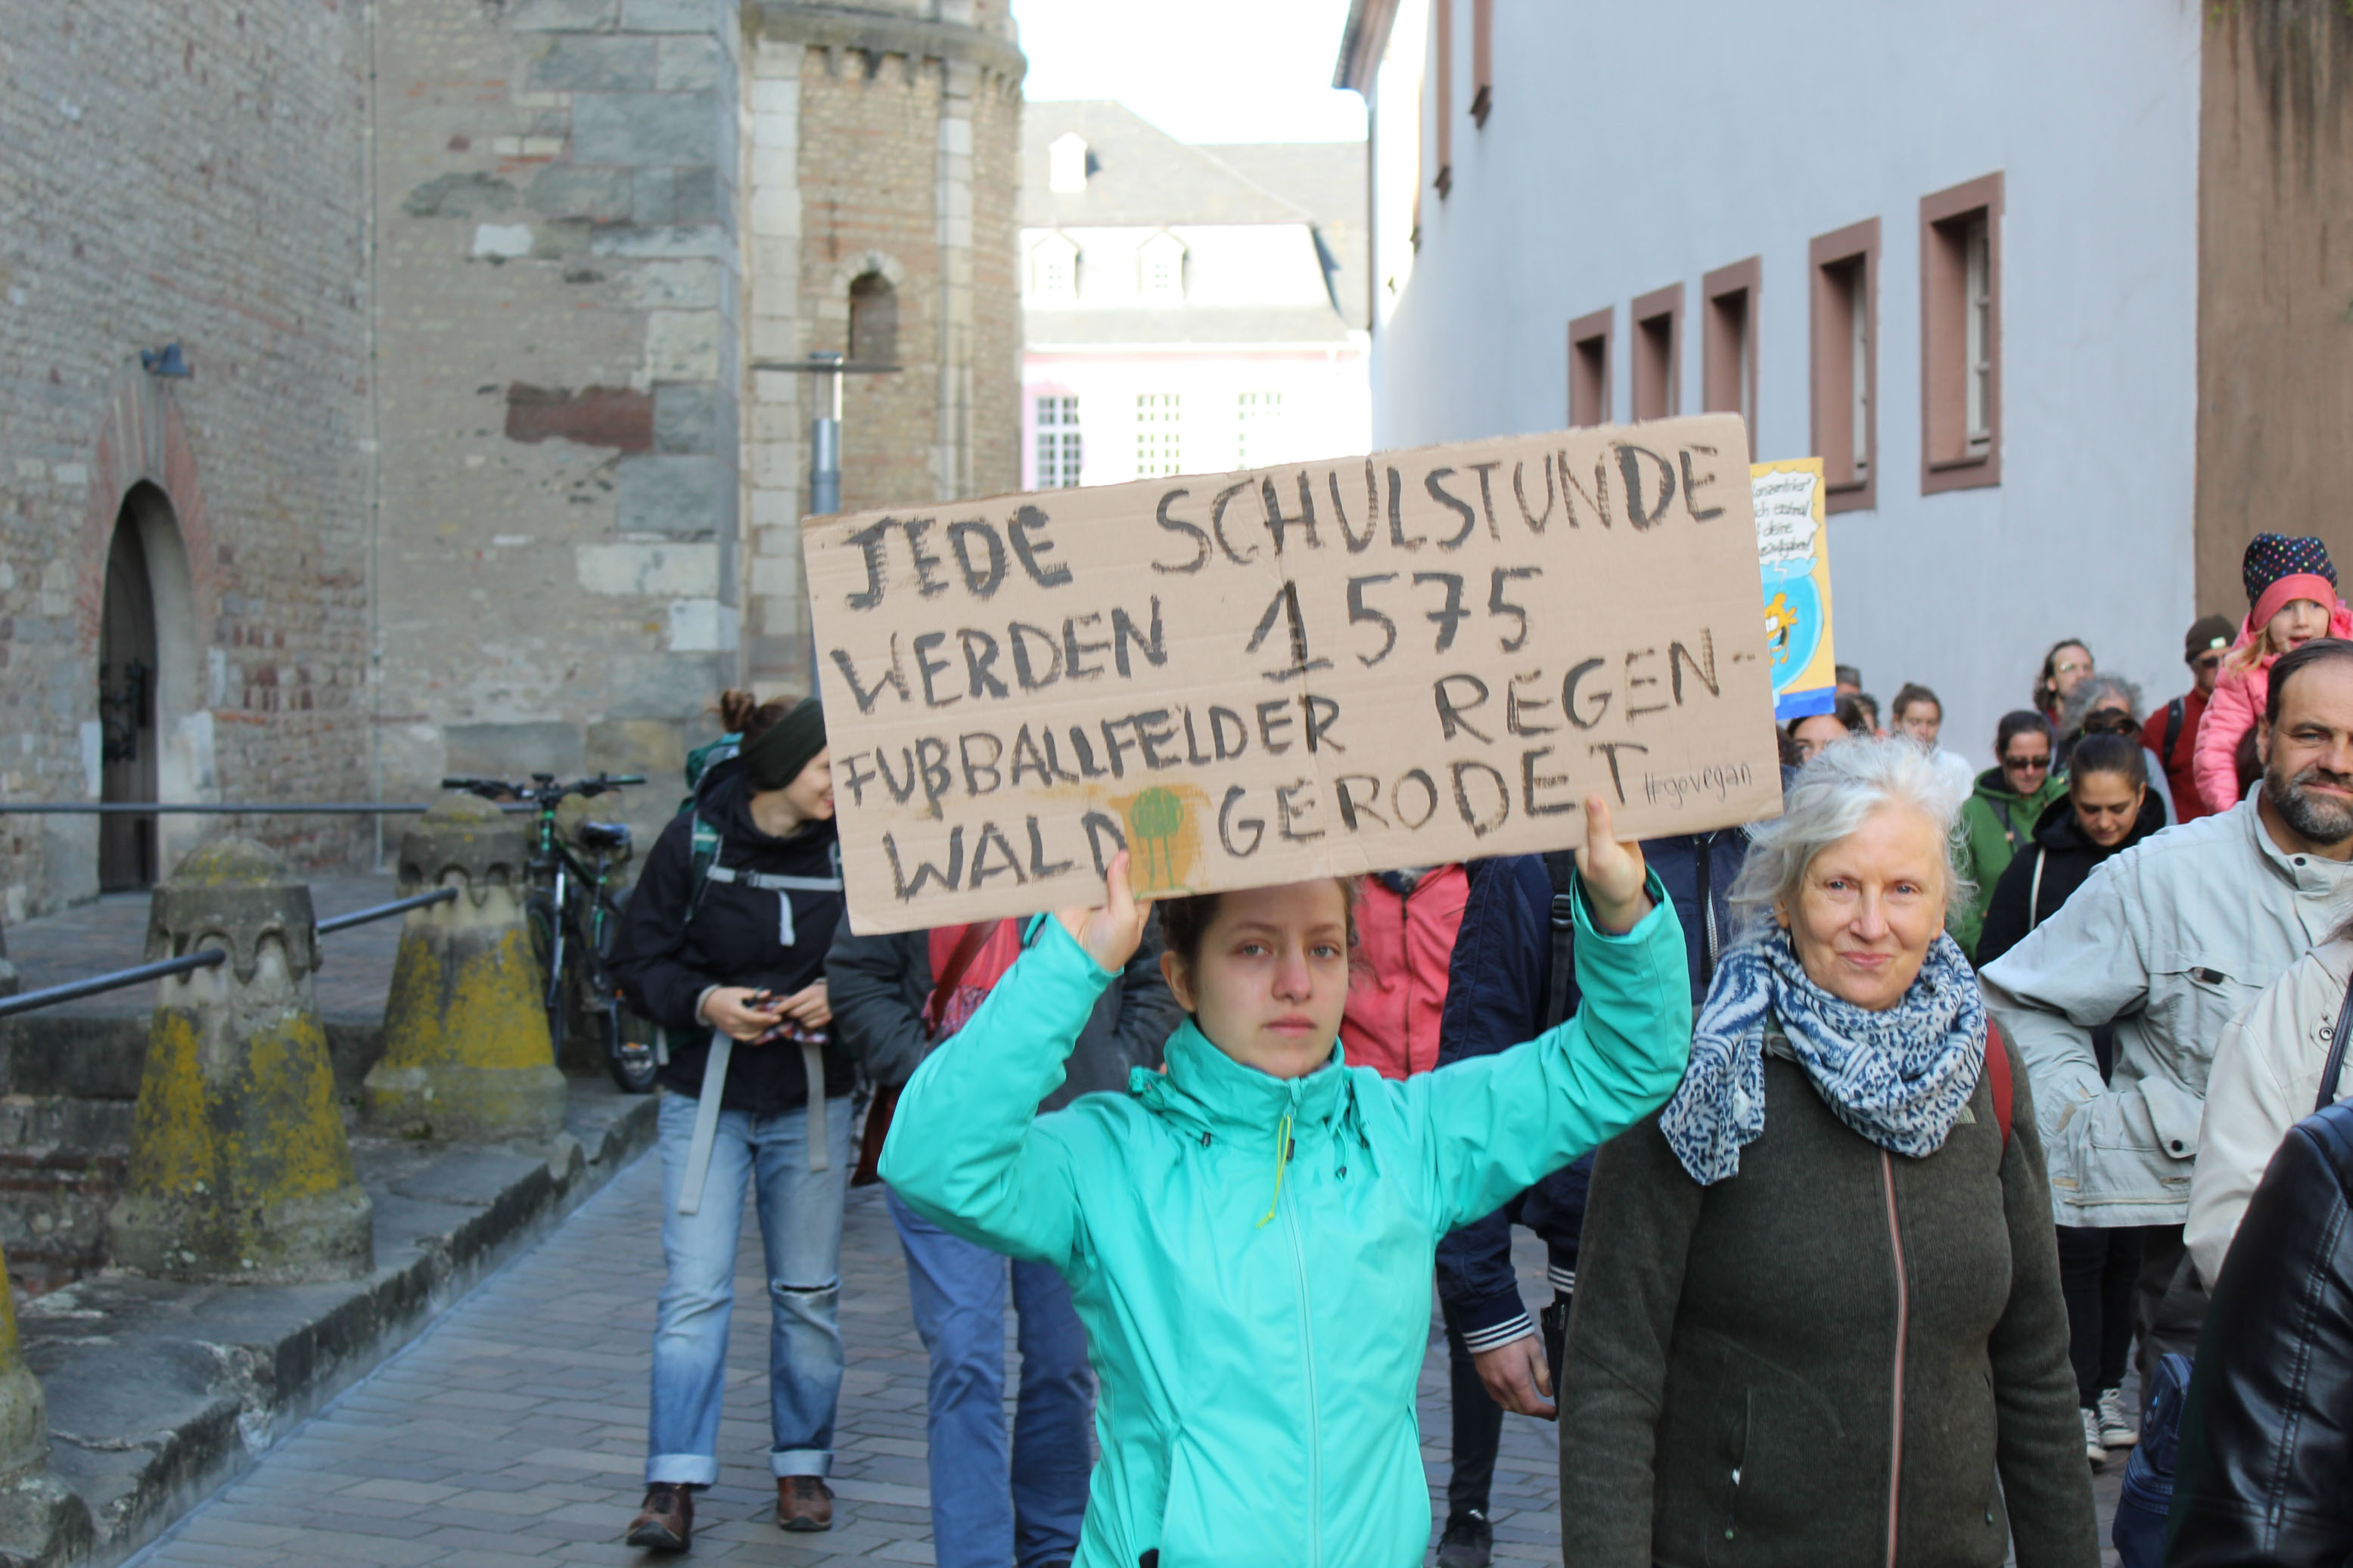 JEDE SCHULSTUNDE
WERDEN 1575
FUßBALLFELDER REGEN-
WALD GERODET #govegan
ich einmal
deine